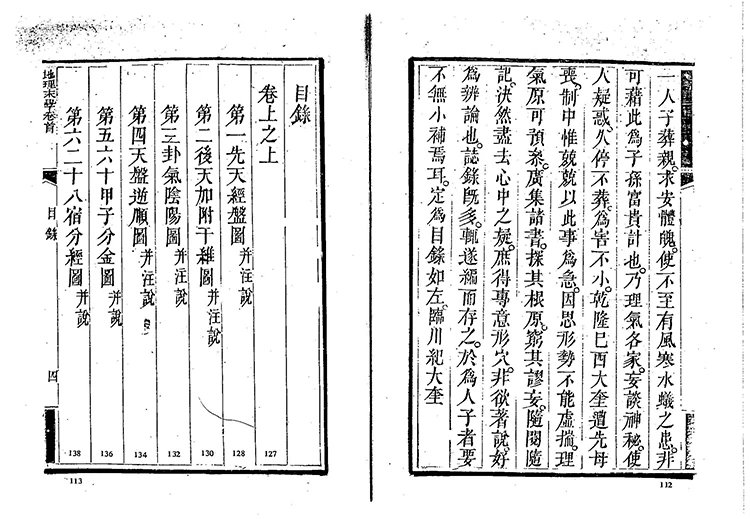 一人子葬親。求安體魄。使不至有風寒水蟻之患。非
可藉此為子孫富貴計也。乃理氣各家。妄談神秘。使
人疑惑。久停不葬。為害不小。乾隆己酉大奎遭先母
喪。制中惟兢兢以此事為急。因思形勢不能虛揣。理
氣原可預叅。廣集諸書。探其根原。窮其謬妄。隨閱隨
記。決然盡去心中之疑。庶得專意形穴。非欲著說。好
為辨論也。誌錄既多。輒遂編而存之。於為人子者要
不無小補焉耳。定為目錄如左。臨川紀大奎
112
目錄
卷上之上 127
第一先天經盤圖 并注說 128
第二後天加附干維圖 并注說 130
第三卦氣陰陽圖 并注說 132
第四天盤逆順圖 并注說 134
第五六十甲子分金圖 并說 136
第六二十八宿分經圖 并說 138
地理末學卷首
目錄
四
113